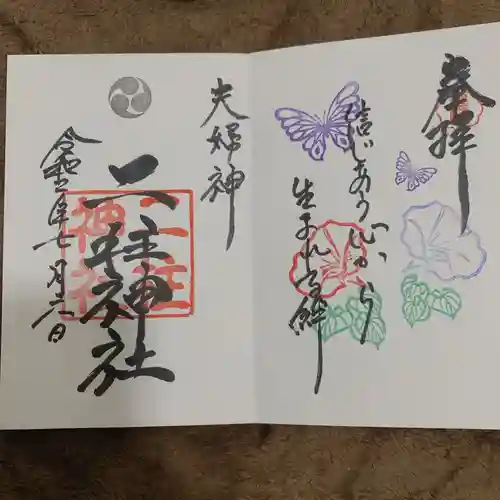 奉拝
信じあう心から
生まれる絆
夫婦神
二柱神社
二柱
神社
令和二年七月六日